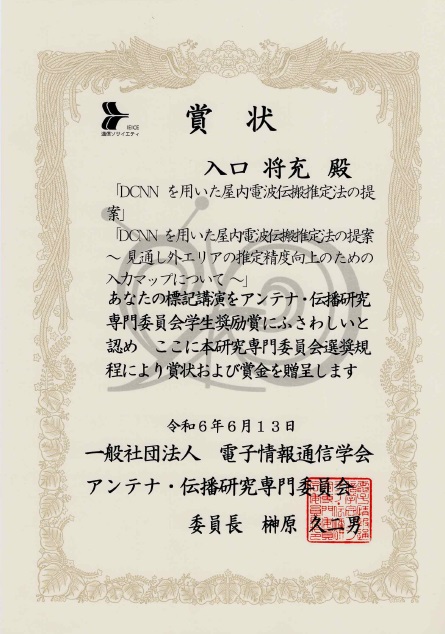 IEICE
通信ソサイエティ
賞 状
入口 将充 殿
「DCNN を用いた屋内電波伝搬推定法の提
案」
「DCNN を用いた屋内電波伝搬推定法の提案
～ 見通し外エリアの推定精度向上のための
入力マップについて ～」
あなたの標記講演をアンテナ・伝播研究
専門委員会学生奨励賞にふさわしいと
認め ここに本研究専門委員会選奨規
程により賞状および賞金を贈呈します
令和６年６月１３日
一般社団法人 電子情報通信学会
アンテナ・伝播研究専門委員会
委員長 榊原 久二男